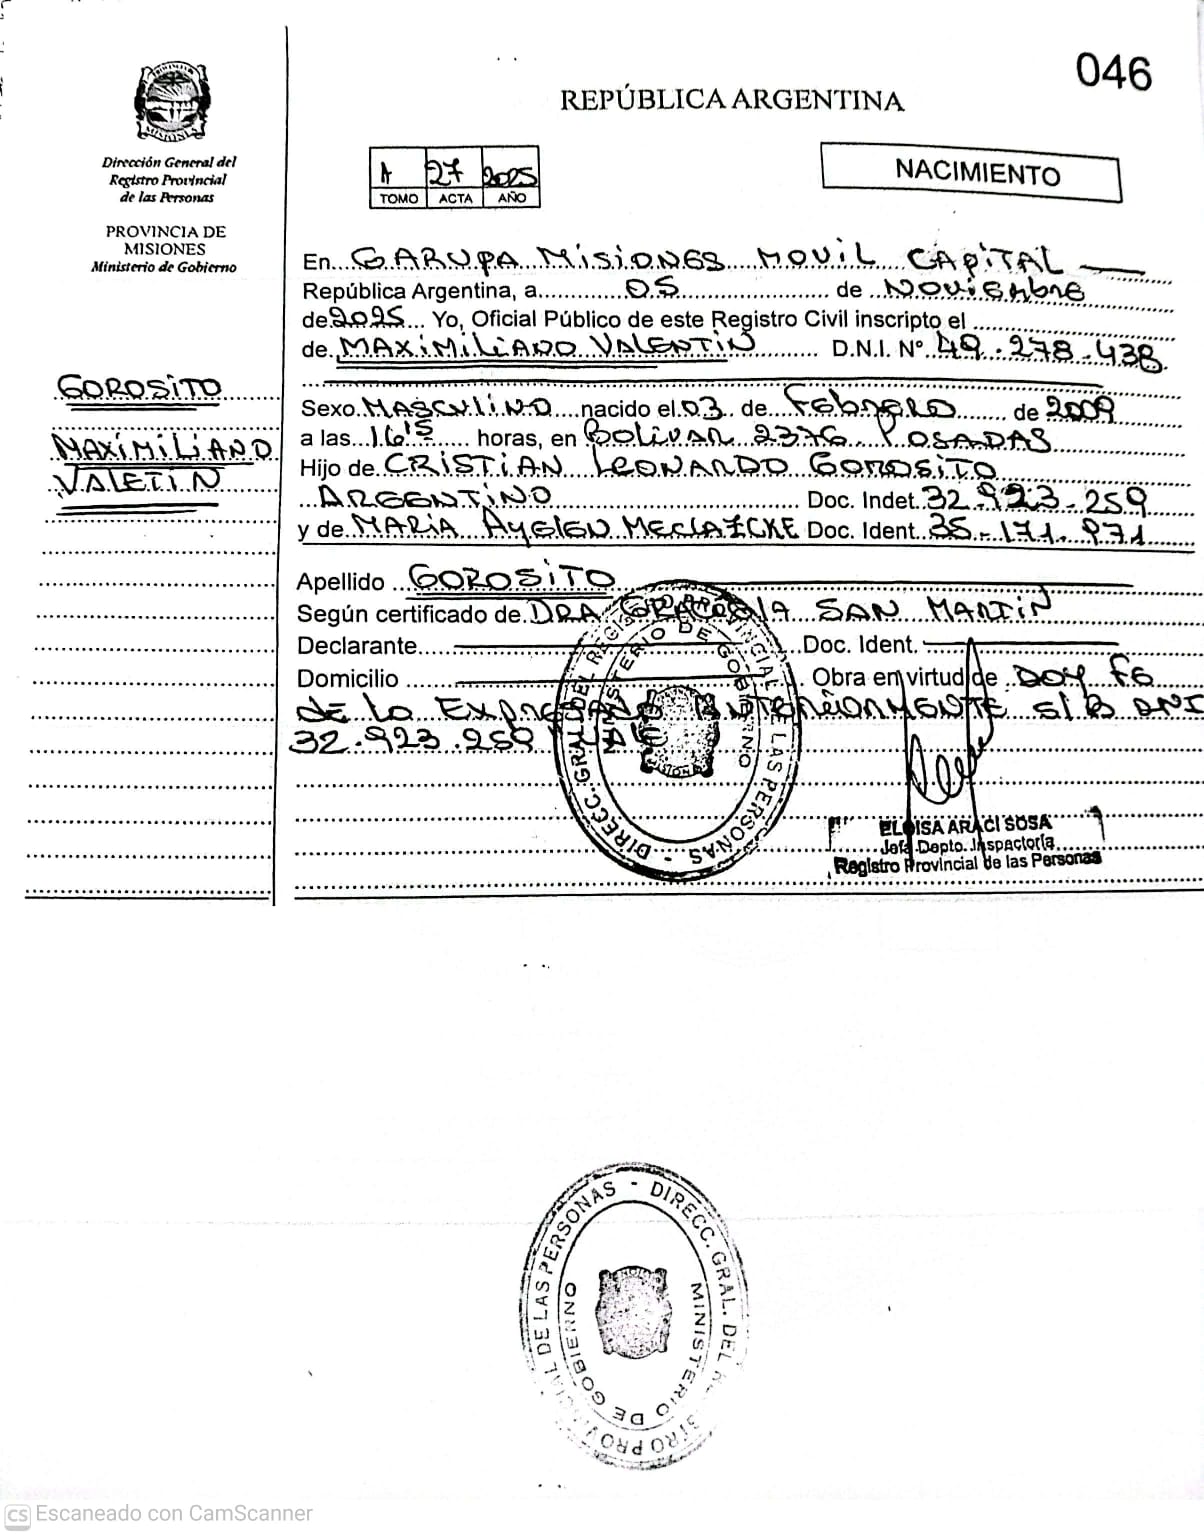 046
REPÚBLICA ARGENTINA
PROVINCIA DE MISIONES
Dirección General del
Registro Provincial
de las Personas
PROVINCIA DE
MISIONES
Ministerio de Gobierno
A 27 2025
TOMO ACTA AÑO
NACIMIENTO
En GARUPA MISIONES MOVIL CAPITAL
República Argentina, a 05 de NOVIEMBRE
de 2025 Yo, Oficial Público de este Registro Civil inscripto el
de MAXIMILIANO VALENTIN D.N.I. N° 49.278.438
GOROSITO
MAXIMILIANO
VALETIN
Sexo MASCULINO nacido el 03 de Febrero de 2009
a las 16'5 horas, en Bolivar 2376 POSADAS
Hijo de CRISTIAN LEONARDO GOROSITO
ARGENTINO Doc. Indet. 32.923.259
y de MARIA AYELEN Doc. Ident. 35.171.971
Apellido GOROSITO
Según certificado de DRA SAN MARTIN
Declarante Doc. Ident.
Domicilio Obra en virtud de DOY FE
de lo ANTERIORMENTE S/B DNI
32.923.259 VALE
DIRECC. GRAL. DEL REGISTRO PROVINCIAL DE LAS PERSONAS
MINISTERIO DE GOBIERNO
ELOISA ARACI SOSA
Jefa Depto. Inspactoría
Registro Provincial de las Personas
DIRECC. GRAL. DEL REGISTRO PROVINCIAL DE LAS PERSONAS
MINISTERIO DE GOBIERNO
CS Escaneado con CamScanner